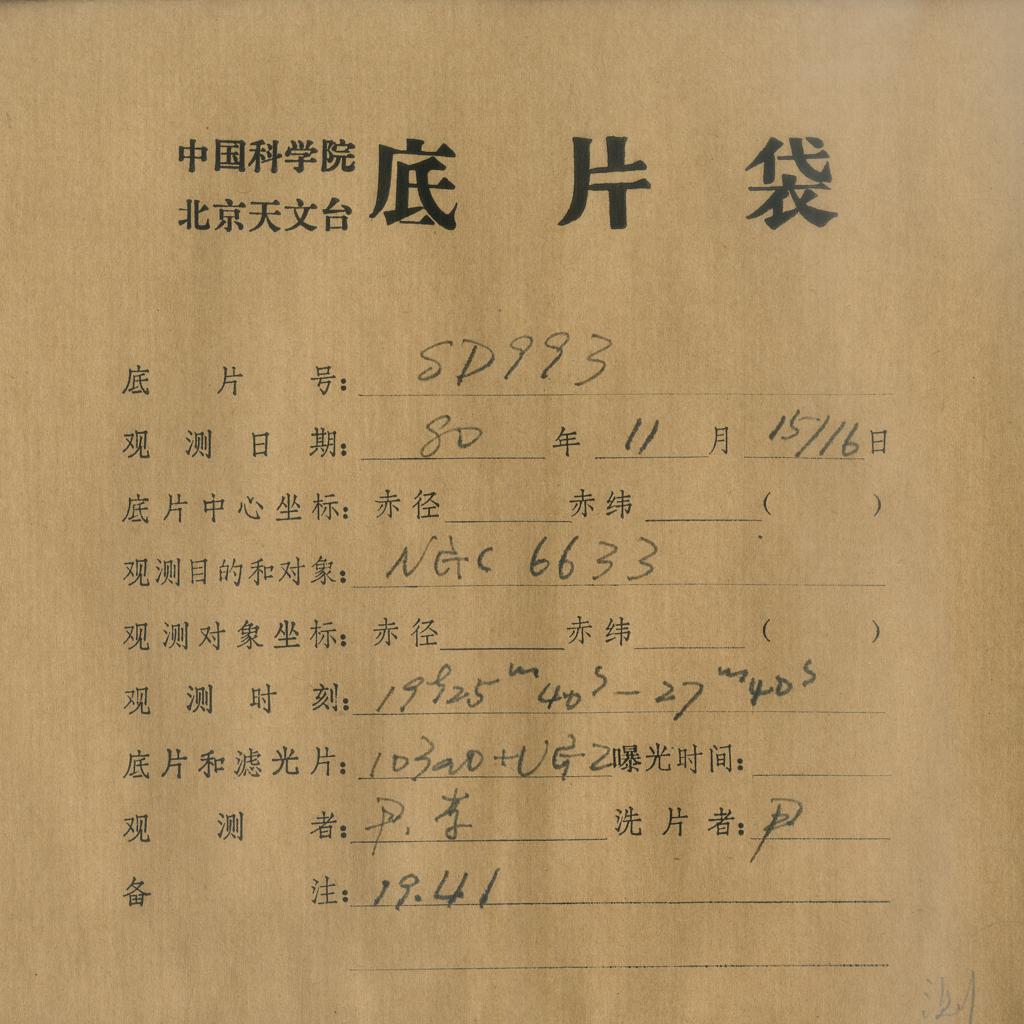 中国科学院
北京天文台
底片袋
底片号: SD993
观测日期: 80年11月15/16日
底片中心坐标: 赤径 赤纬 ( )
观测目的和对象: NGC 6633
观测对象坐标: 赤径 赤纬 ( )
观测时刻: 19h25m40s-27m40s
底片和滤光片: 103aO+UG2 曝光时间:
观测者: 尹.李 洗片者: 尹
备注: 19.41
测